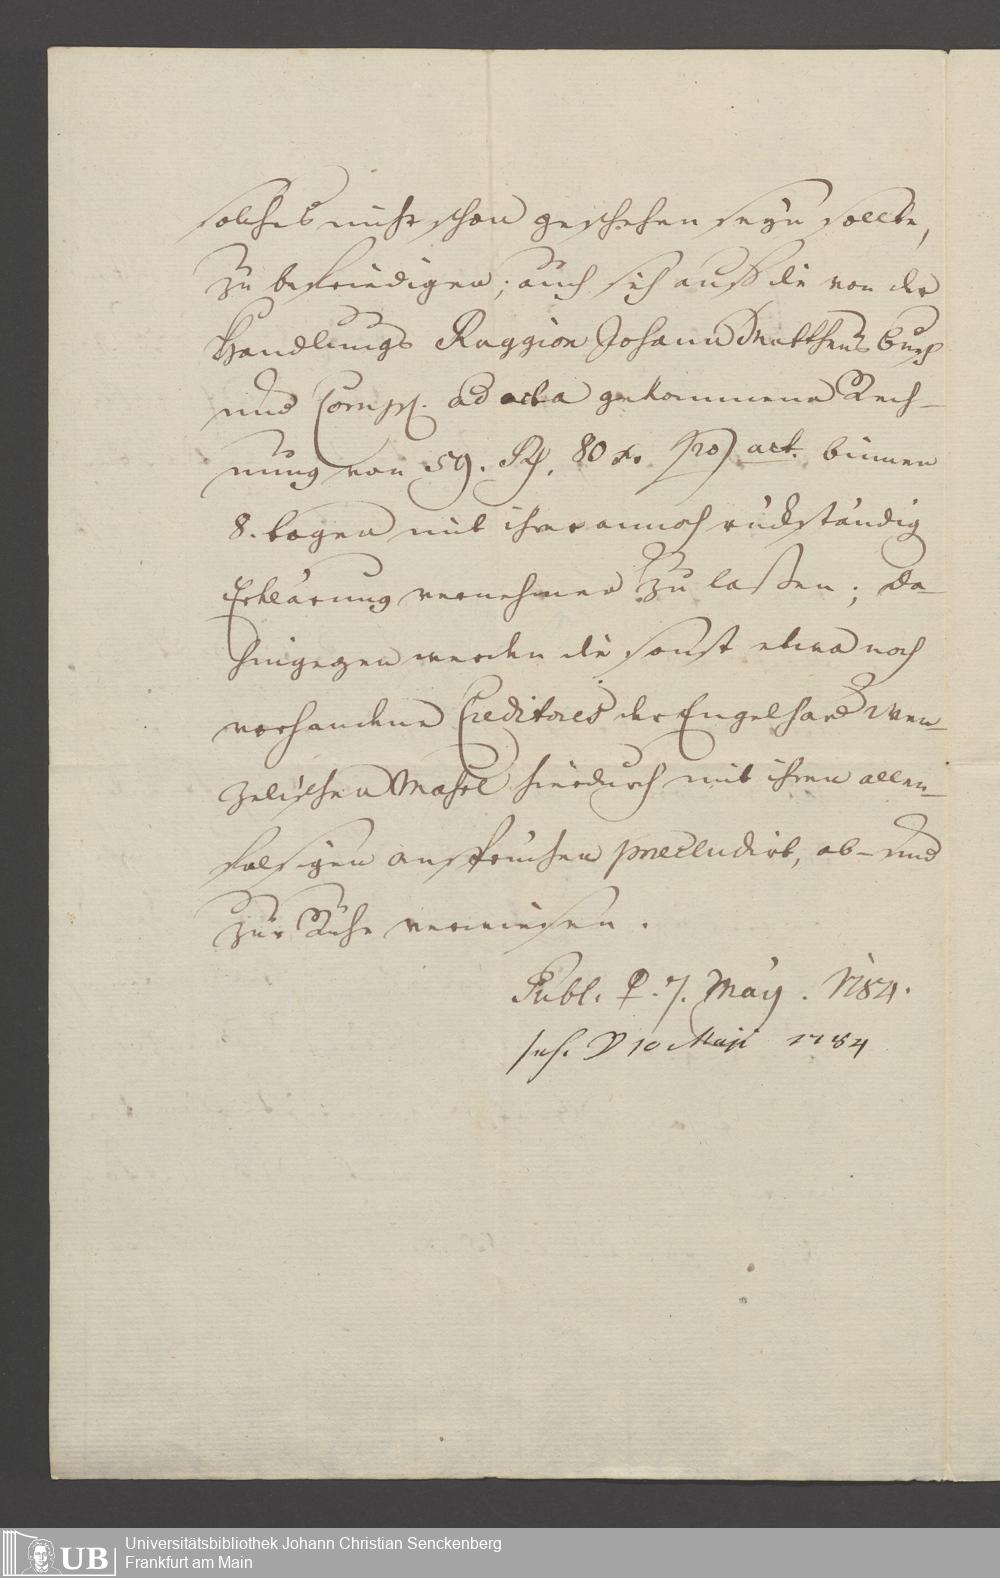 solches nicht schon geschehen seÿn sollte,
zu befriedigen; auch sich auf die von der
Handlungs Raggion Johann Mattheus
und Comp. ad acta gekommene Rech-
nung von 59. Rh. 80 act. binnen
8. tagen mit ihrer annoch rückständig
Erklärung vernehmen zu laßen; da-
hingegen werden die sonst etwa noch
vorhandene Creditores der Engelhard Wen-
zelischen Massæ hierdurch mit ihren allen-
falsigen ansprüchen præcludirt, ab- und
zur Ruhe verwiesen.
Publ. 7. Maÿ. 1784.
Maji 1784
Universitätsbibliothek Johann Christian Senckenberg
UB Frankfurt am Main